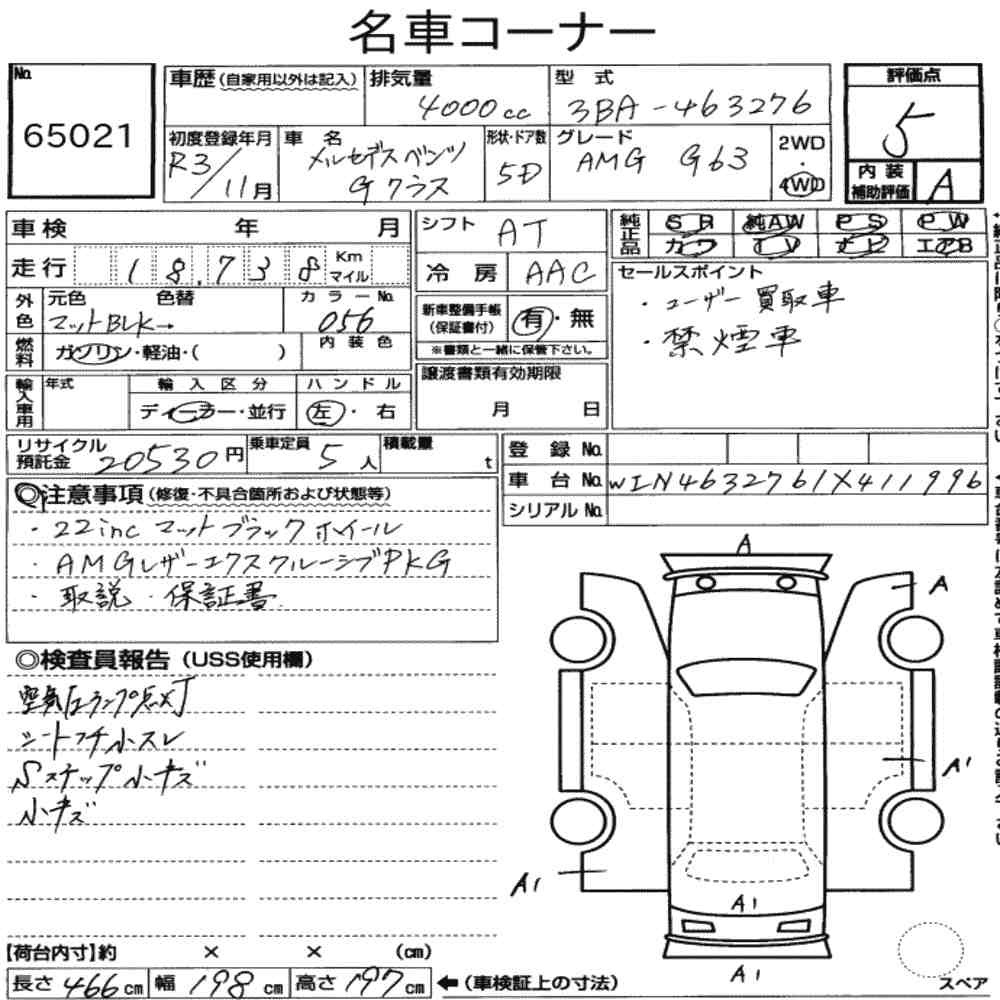 名車コーナー
No. 65021
車歴(自家用以外は記入)
排気量 4000cc
型式 3BA-463276
評価点 5
初度登録年月 R3/11月
車名 メルセデスベンツ Gクラス
形状・ドア数 5D
グレード AMG G63
2WD
4WD
内装補助評価 A
車検 年 月
走行 18,738 Km マイル
外色 元色 マットBLK→ 色替
カラーNo. 056
燃料 ガソリン・軽油・( )
内装色
輸入車用 年式
輸入区分 ディーラー・並行
ハンドル 左・右
シフト AT
冷房 AAC
新車整備手帳(保証書付) 有・無
※書類と一緒に保管下さい。
譲渡書類有効期限
月 日
純正品 SR 純AW PS PW
カワ TV ナビ エアB
セールスポイント
・ユーザー買取車
・禁煙車
リサイクル預託金 20530円
乗車定員 5人
積載量 t
登録No.
車台No. W1N4632761X411996
シリアルNo.
◎注意事項(修復・不具合箇所および状態等)
・22inc マットブラックホイール
・AMGレザーエクスクルーシブPKG
・取説・保証書
◎検査員報告(USS使用欄)
空気圧ランプ点灯
シートフチ小スレ
Sステップ小キズ
小キズ
A
A
A1
A1
A1
A1
スペア
【荷台内寸】約 × × (cm)
長さ 466cm 幅 198cm 高さ 197cm ←(車検証上の寸法)